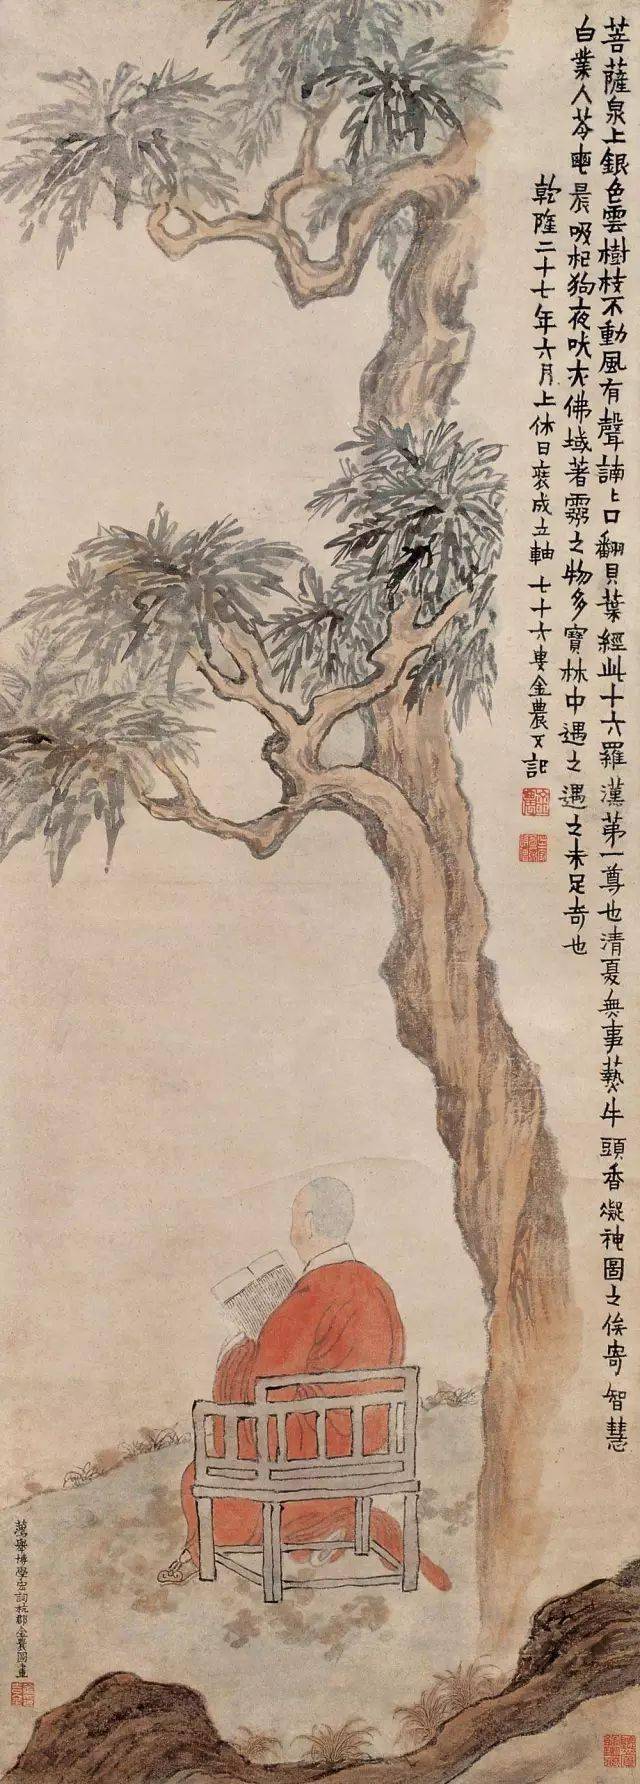 菩薩泉上銀色雲樹枝不動風有聲誦上口翻貝葉經此十六羅漢第一尊也清夏無事爇牛頭香凝神圖之俟寄智慧
白業人苓𤱶晨吸杞狗夜吠大佛域著靈之物多寶林中遇之遇之未足奇也
乾隆二十七年六月上休日裝成立軸七十六叟金農又記
薦舉博學宏詞杭郡金農圖畫